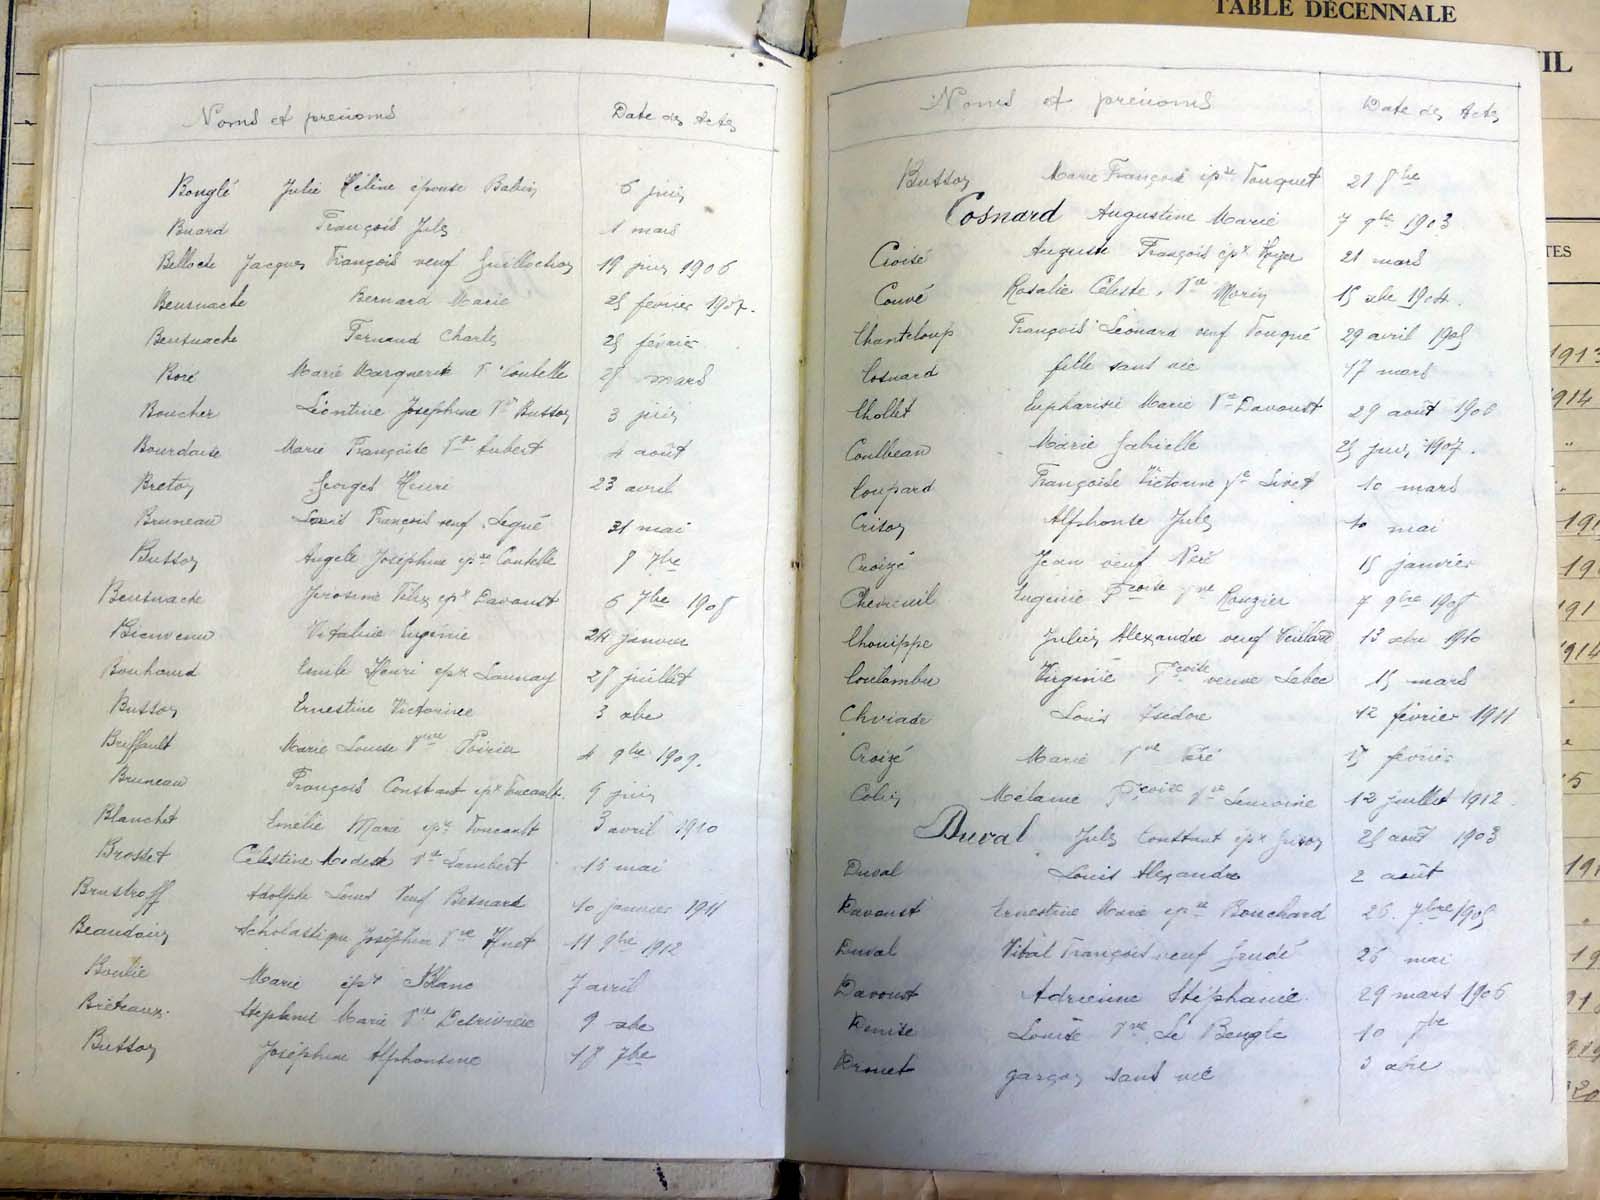 TABLE DÉCENNALE
Noms et prénoms Date des Actes
Bouglé Julie Hélène épouse Babin 6 juin
Buard François Jules 1 mars
Belloche Jacques François veuf Guillochon 19 juin 1906
Beusnache Bernard Marie 25 février 1907.
Beusnache Fernand Charles 25 février
Boré Marie Marguerite Vve Coutelle 25 mars
Boucher Léontine Joséphine Vve Busson 3 juin
Bourdaise Marie Françoise Vve Aubert 4 août
Breton Georges Henri 23 avril
Bruneau Louis François veuf Legué 31 mai
Busson Angèle Joséphine épse Coutelle 8 7bre
Beusnache Félix épx Davoust 6 7bre 1908
Bienvenu Vitaline Eugénie 24 janvier
Bouhourd Emile Henri épx Launay 28 juillet
Busson Ernestine Victorine 3 xbre
Bruffault Marie Louise Vve Poirier 4 9bre 1909.
Bruneau François Constant épx 9 juin
Blanchet Emélie Marie épse Foucault 3 avril 1910
Brosset Célestine Modeste Vve Lambert 16 mai
Brustroff Adolphe Louis Veuf Besnard 10 janvier 1911
Beaudoin Scholastique Joséphine Vve Huet 11 9bre 1912
Boulié Marie épse Blanc 7 avril
Stéphanie Marie Vve Desrivière 9 xbre
Busson Joséphine Alphonsine 18 7bre
Noms et prénoms Date des Actes
Busson Marie François épse Fouquet 21 8bre
Cosnard Augustine Marie 7 9bre 1903
Croisé Auguste François épx Royer 21 mars
Couvé Rosalie Céleste, Vve Morin 15 xbre 1904.
Chanteloup François Léonard veuf Fouqué 29 avril 1905
Cosnard fille sans vie 17 mars
Chollet Eupharisie Marie Vve Davoust 29 août 1906
Coulbeau Marie Gabrielle 25 juin 1907.
Coupard Françoise Victorine Vve Livet 10 mars
Crison Alphonse Jules 10 mai
Croizé Jean veuf Néré 15 janvier
Chevreuil Eugénie Fçoise Vve Rouzier 7 9bre 1908
Chouippe Julien Alexandre veuf Veillard 13 xbre 1910
Coulombu Virginie Fçoise veuve Lebec 15 mars
Chviade Louis Isidore 12 février 1911
Croizé Marie Vve 17 février
Colin Mélanie Fçoise Vve Lemoine 12 juillet 1912.
Duval Jules Constant épx 25 août 1903
Duval Louis Alexandre 2 août
Davoust Ernestine Marie épse Bouchard 26. 7bre 1905
Duval Vital François veuf Gendé 26 mai
Davoust Adrienne Stéphanie. 29 mars 1906
Denise Louise Vve Le Beugle 10 7bre
Drouet garçon sans vie 3 xbre